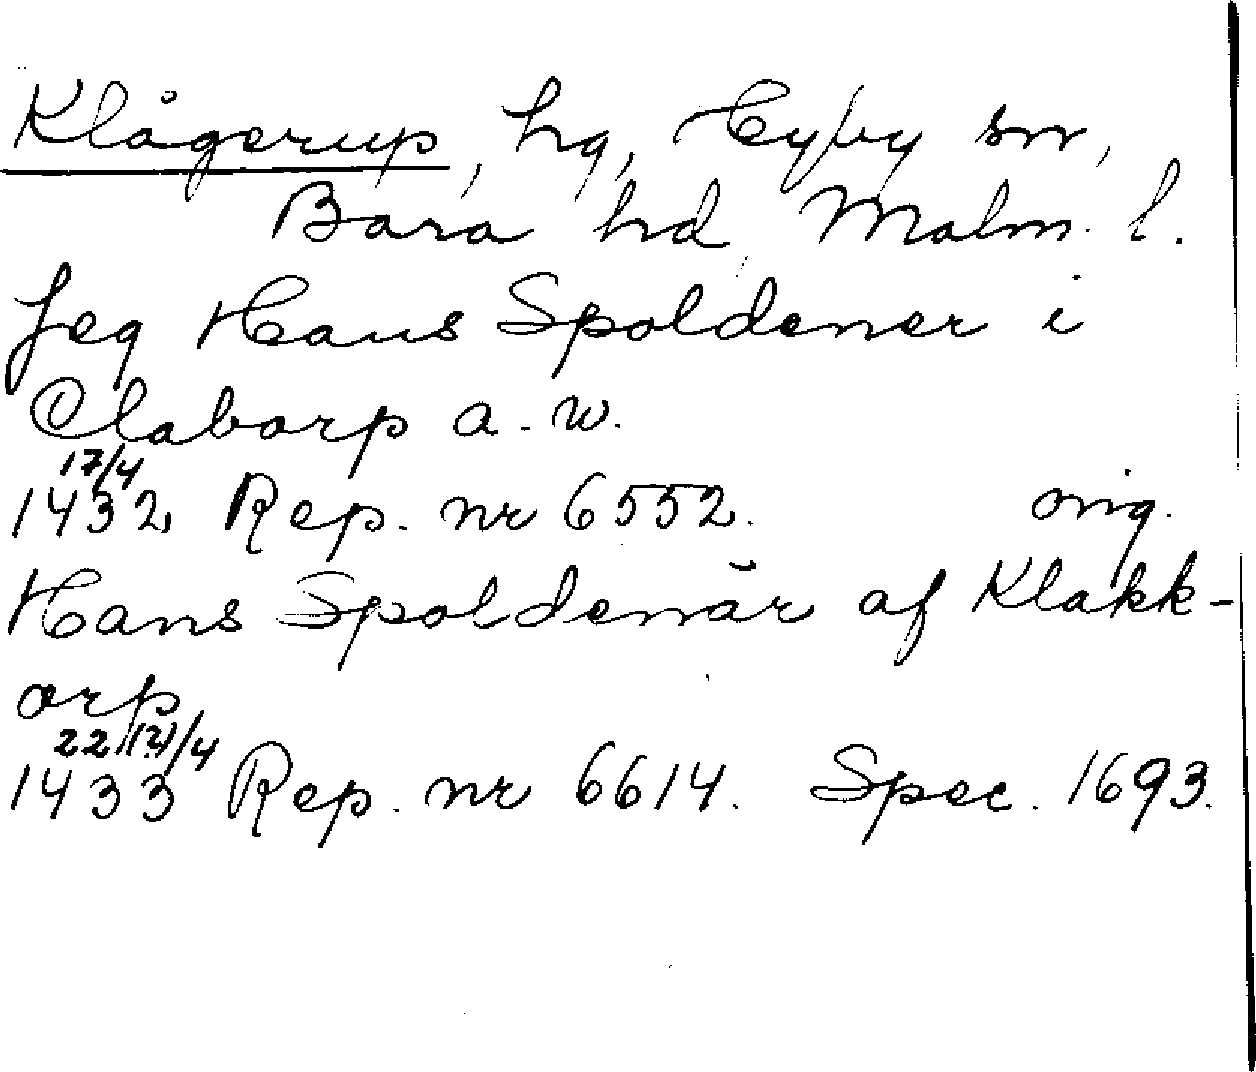 Klågerup, hg, Hyby sn,
Bara hd, Malm. l.
Jeg Hans Spoldener i
Claborp a. w.
17/4
1432 Rep. nr 6552. orig.
Hans Spoldenär af Klakk-
orp
22 (?)/4
1433 Rep. nr 6614. Spec. 1693.